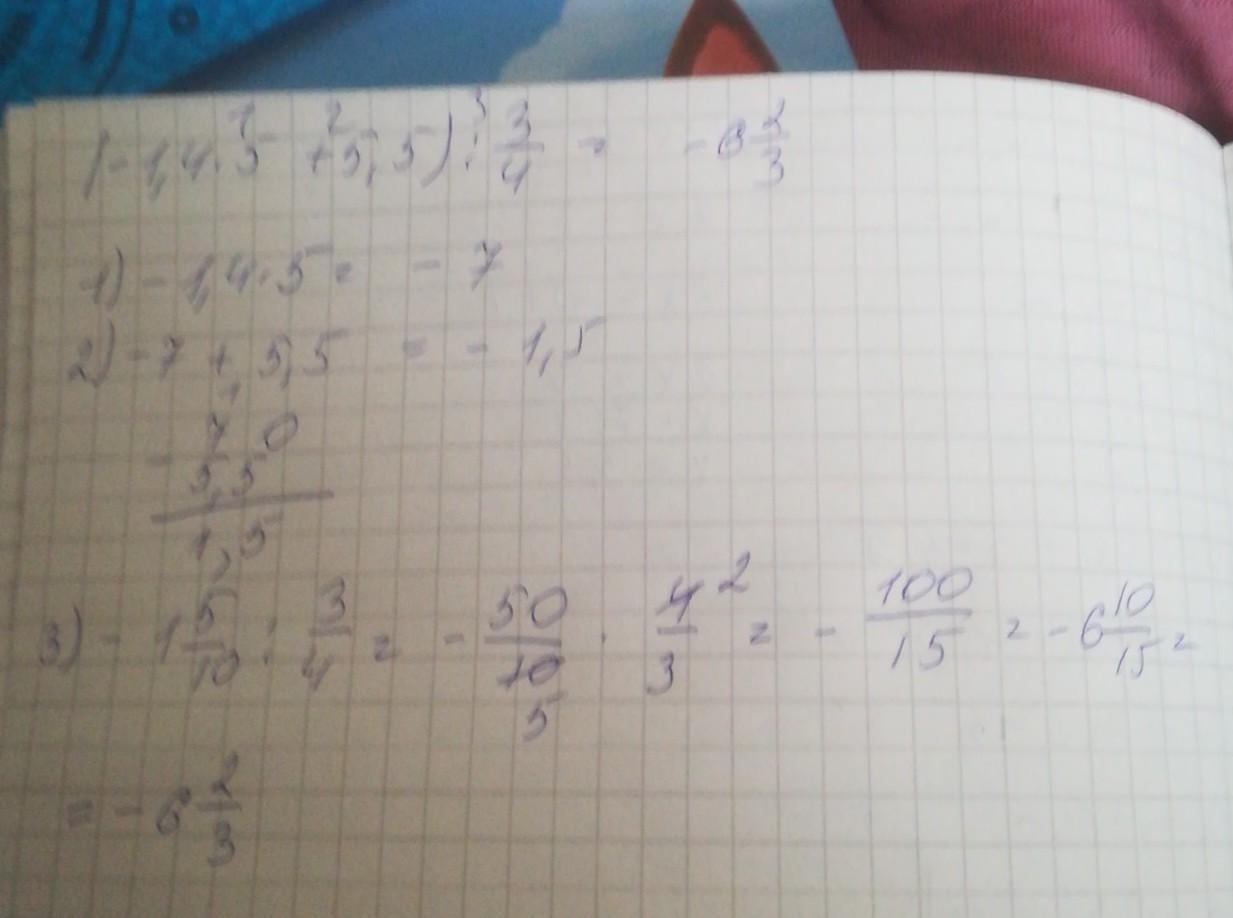 1 2 3
(-1,4·5 +5,5) : 3/4 = -6 2/3
1) -1,4·5 = -7
2) -7 + 5,5 = - 1,5
- 7,0
5,5
1,5
3) - 1 5/10 : 3/4 = - 50/10 · 4/3 = - 100/15 = - 6 10/15 =
5 2
= - 6 2/3